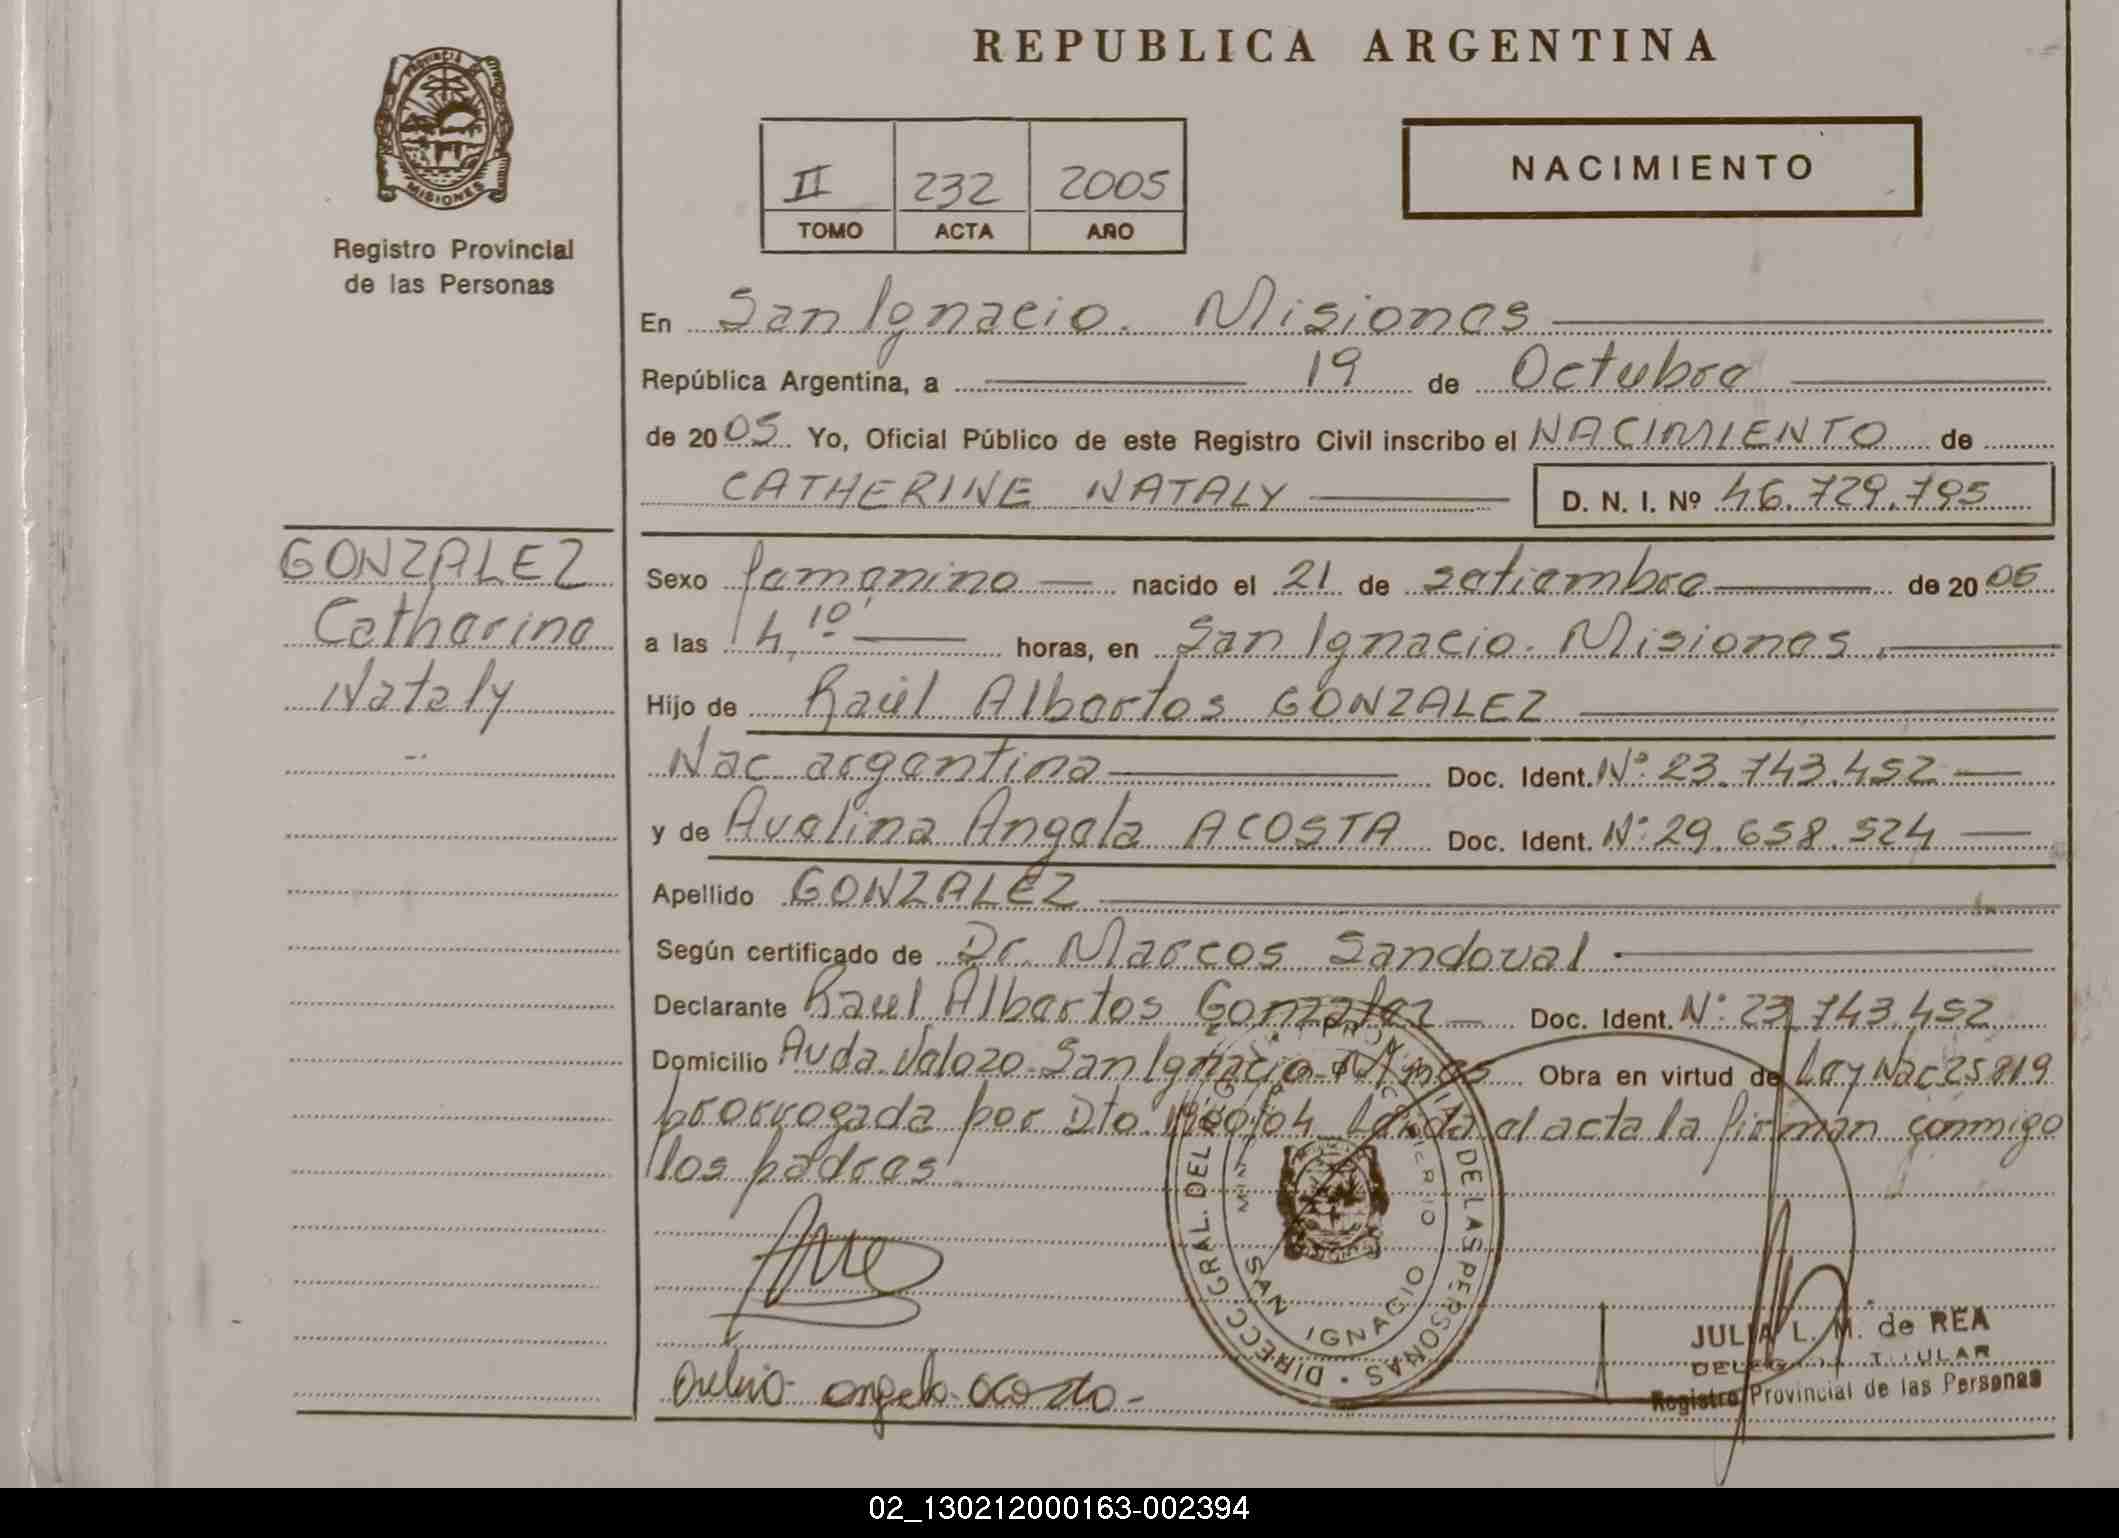 REPUBLICA ARGENTINA
PROVINCIA DE
MISIONES
Registro Provincial
de las Personas
II 232 2005
TOMO ACTA AÑO
NACIMIENTO
En San Ignacio. Misiones
República Argentina, a 19 de Octubre
de 2005 Yo, Oficial Público de este Registro Civil inscribo el NACIMIENTO de
CATHERINE NATALY D. N. I. Nº 46.729.795
GONZALEZ
Catherine
Nataly
Sexo femenino nacido el 21 de setiembre de 20
a las 4,10 horas, en San Ignacio. Misiones.
Hijo de Raúl Albertos GONZALEZ
Nac argentina Doc. Ident. Nº 23.743.452
y de Avelina Angela ACOSTA Doc. Ident. Nº 29.658.524
Apellido GONZALEZ
Según certificado de Dr. Marcos Sandoval
Declarante Raul Albertos Gonzalez Doc. Ident. Nº 23.743.452
Domicilio Avda. San Ignacio Mnes Obra en virtud de Ley Nac 25819
prorrogada por Dto. Leida el acta la firman conmigo
los padres.
DIRECC. GRAL. DEL DE LAS PERSONAS
SAN IGNACIO
angela acosta
JULIA L. M. de REA
DELEGADA TITULAR
Registro Provincial de las Personas
02_130212000163-002394